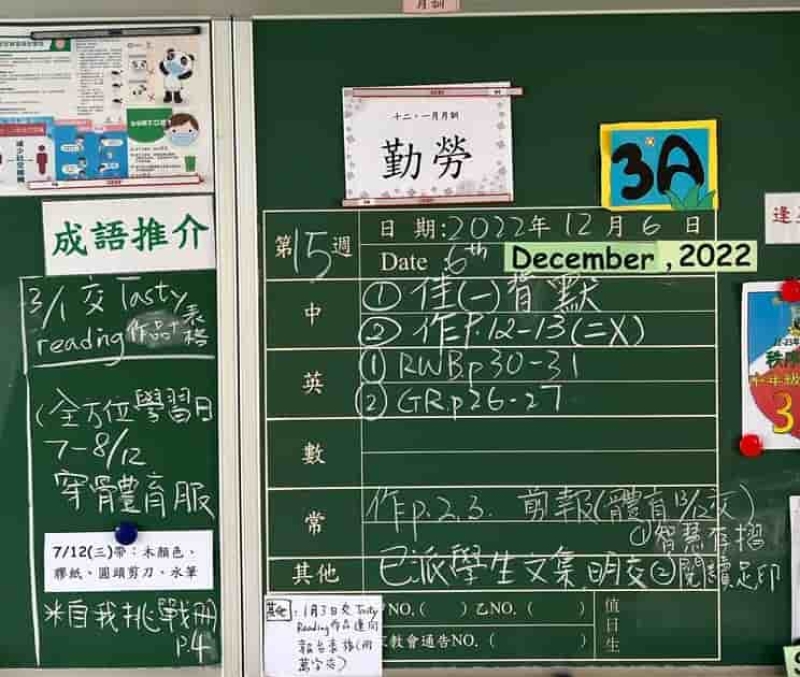 月訓
成語推介
3/1 交 Tasty
reading 作品+表格
(全方位學習日
7-8/12
穿體育服
7/12(三)帶：木顏色、
膠紙、圓頭剪刀、水筆
*自我挑戰冊
p4
十二、一月月訓
勤勞
3A
第15週
日期:2022年12月6日
Date :6th December ,2022
中
① 佳(一)背默
② 作P.12-13(二X)
英
① RWBp30-31
② GRp26-27
數
常
作p.2,3. 剪報(體育13/12交)
其他
已派學生文集,明交
①智慧存摺
②閱讀足印
NO.( ) 乙NO.( )
教會通告NO.( )
值日生
其他:1月3日交Tasty
Reading作品連同
報名表格(冊
萬字夾)
逢
3